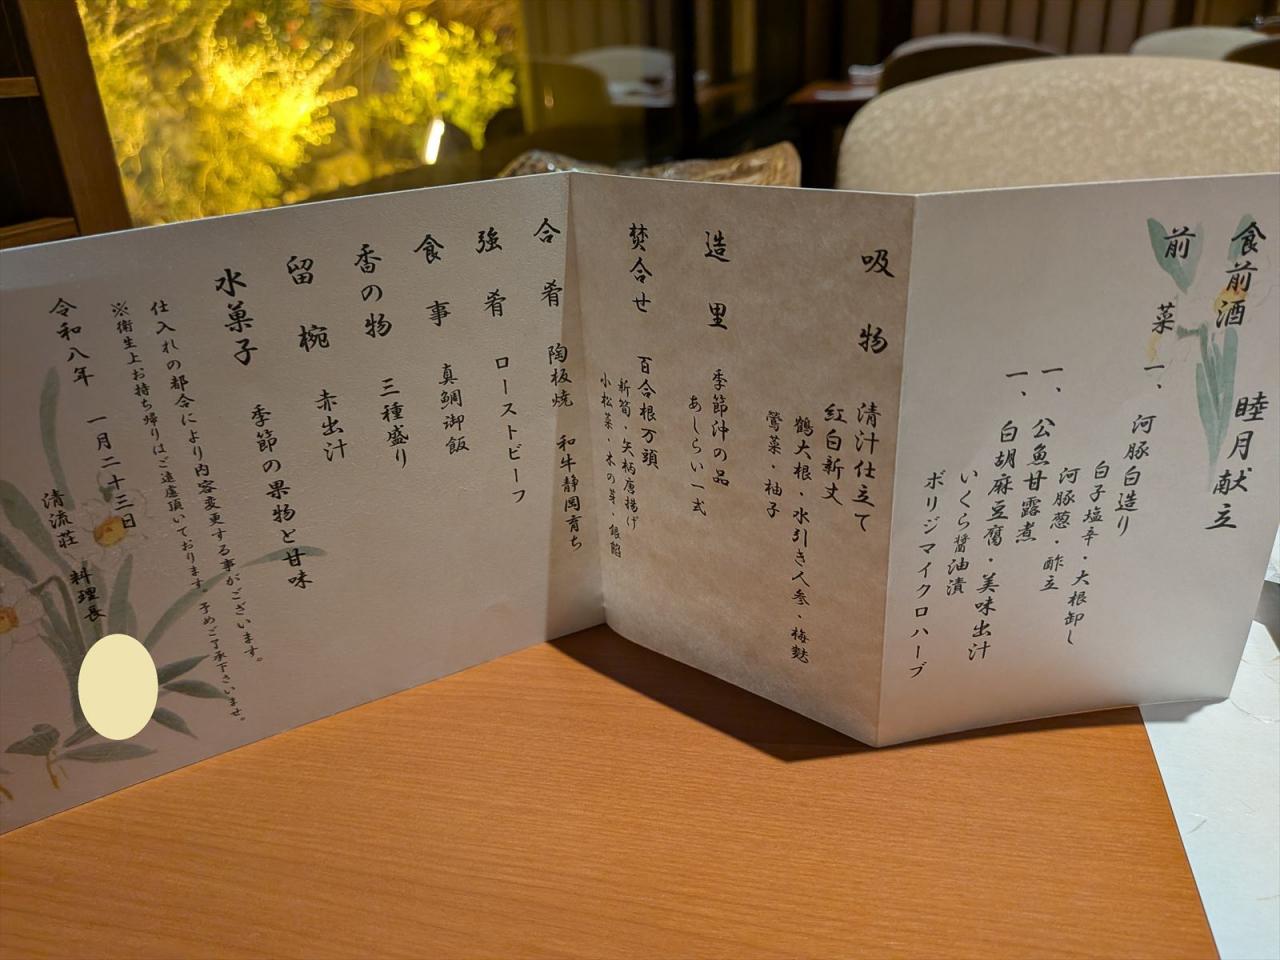 食前酒
睦月献立
前菜
一、河豚白造り
白子塩辛・大根卸し
河豚葱・酢立
一、公魚甘露煮
一、白胡麻豆腐・美味出汁
いくら醤油漬
ボリジマイクロハーブ
吸物 清汁仕立て
紅白新丈
鶴大根・水引き人参・梅麩
鶯菜・柚子
造里 季節沖の品
あしらい一式
焚合せ 百合根万頭
新筍・矢柄唐揚げ
小松菜・木の芽・銀餡
合肴 陶板焼 和牛静岡育ち
強肴 ローストビーフ
食事 真鯛御飯
香の物 三種盛り
留椀 赤出汁
水菓子 季節の果物と甘味
仕入れの都合により内容変更する事がございます。
※衛生上お持ち帰りはご遠慮頂いております。予めご了承下さいませ。
令和八年 一月二十三日
清流荘 料理長